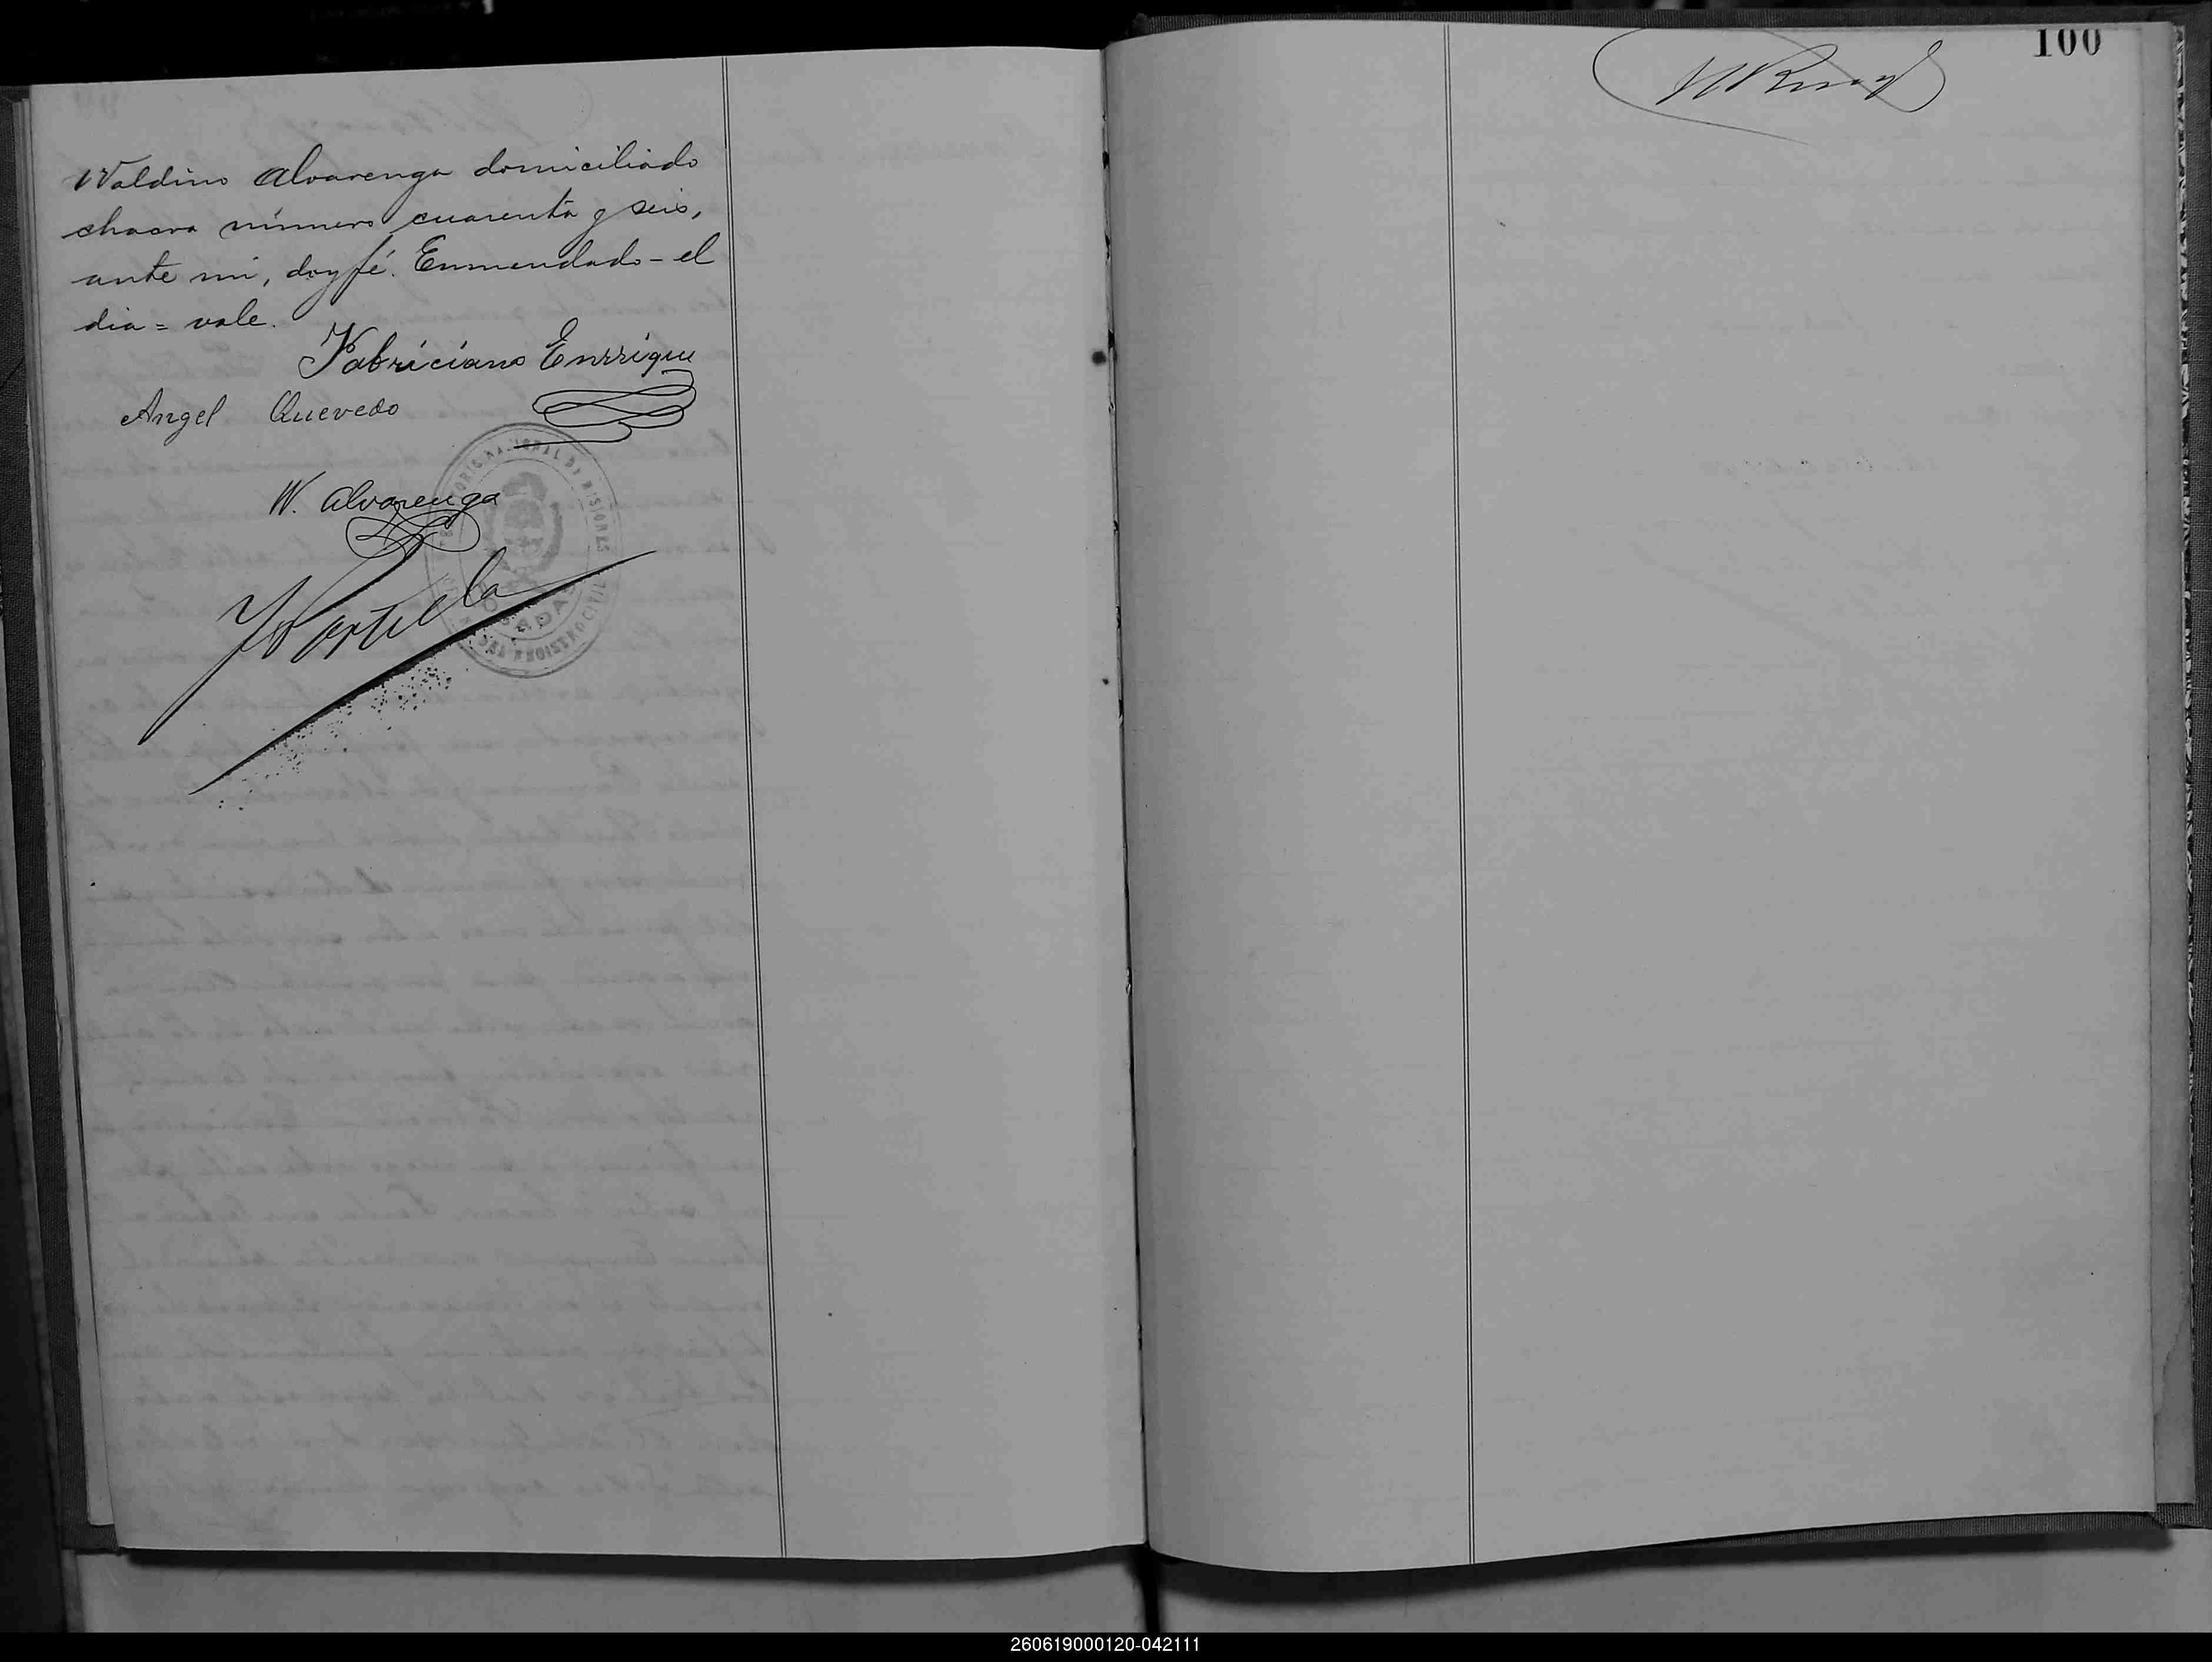 Waldino Alvarenga domiciliado
chacra número cuarenta y seis,
ante mi, doy fé. Enmendado - el
dia = vale.
Fabriciano Enrrique
Angel Quevedo
W. Alvarenga
NACIONAL DE MISIONES
POSADAS
DEL REGISTRO CIVIL
100
260619000120-042111